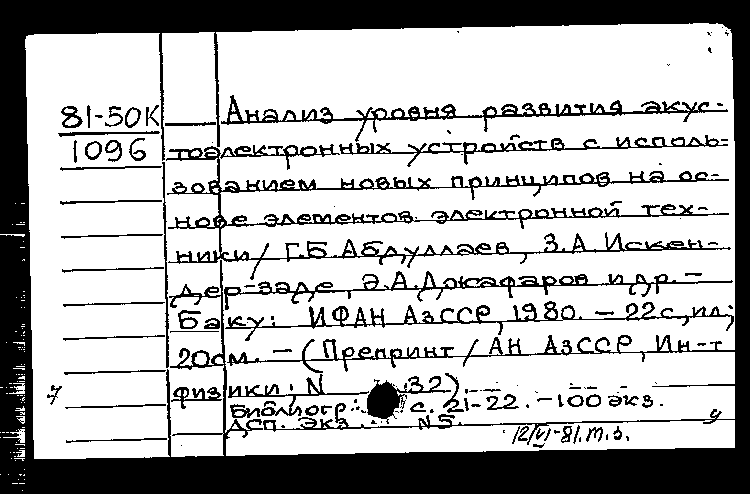 81-50К
1096
Анализ уровня развития акус-
тоэлектронных устройств с исполь-
зованием новых принципов на ос-
нове элементов электронной тех-
ники / Г.Б. Абдуллаев, З.А. Искен-
дер-заде, Э.А. Джафаров и др. –
Баку: ИФАН АзССР, 1980. – 22 с., ил;
20см. – (Препринт / АН АзССР, Ин-т
физики; N 32).
Библиогр.: с. 21-22. – 100 экз.
ДСП. Экз. N5.
12/VI-81.т.з.